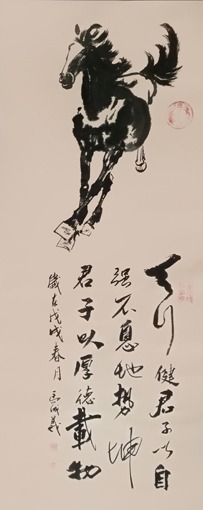 天行健君子以自
强不息地势坤
君子以厚德載物
歲在戊戌春月